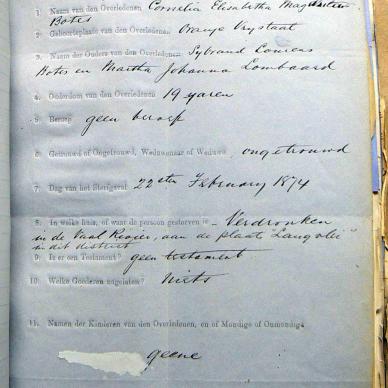 1. Naam van den Overledenen Cornelia Elisabetha
Botes
2. Geboorteplaats van den Overledenen Oranje Vrystaat
3. Namen der Ouders van den Overledenen Sybrand Lourens
Botes en Martha Johanna Lombaard
4. Ouderdom van den Overledenen 19 yaren
5. Beroep geen beroep
6. Getrouwd of Ongetrouwd, Weduwenaar of Weduwe ongetrouwd
7. Dag van het Sterfgeval 22sten February 1874
8. In welke huis, of waar de persoon gestorven is - Verdronken
in de Vaal Rivier, aan de plaats
in dit district
9. Is er een Testament? geen testament
10. Welke Goederen nagelaten? Niets
11. Namen der Kinderen van den Overledenen, en of Mondige of Onmondige
geene